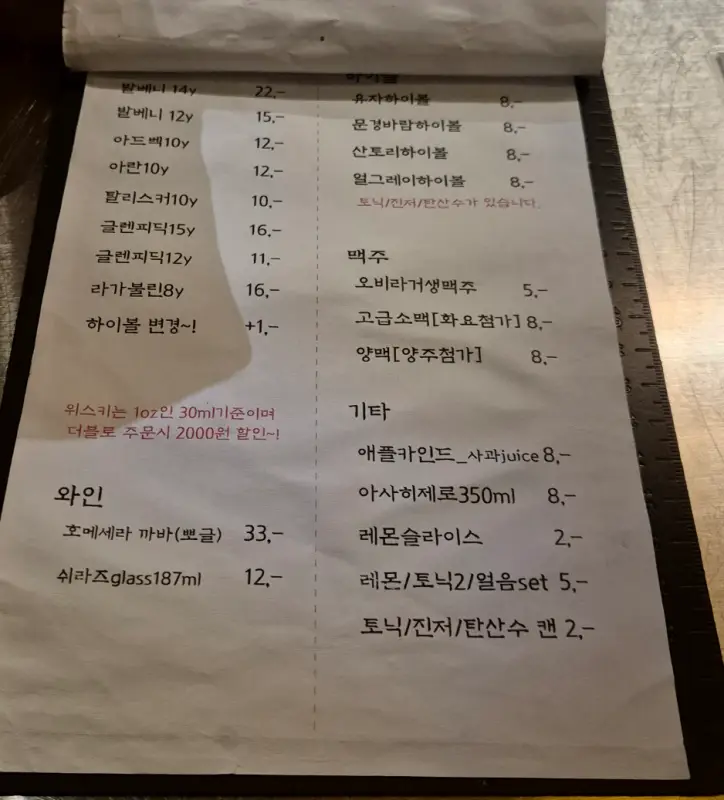 발베니 14y 22,-
발베니 12y 15,-
아드벡10y 12,-
아란10y 12,-
탈리스커10y 10,-
글렌피딕15y 16,-
글렌피딕12y 11,-
라가불린8y 16,-
하이볼 변경~! +1,-
위스키는 1oz인 30ml기준이며
더블로 주문시 2000원 할인~!
와인
호메세라 까바(뽀글) 33,-
쉬라즈glass187ml 12,-
하이볼
유자하이볼 8,-
문경바람하이볼 8,-
산토리하이볼 8,-
얼그레이하이볼 8,-
토닉/진저/탄산수가 있습니다.
맥주
오비라거생맥주 5,-
고급소맥[화요첨가] 8,-
양맥[양주첨가] 8,-
기타
애플카인드_사과juice 8,-
아사히제로350ml 8,-
레몬슬라이스 2,-
레몬/토닉2/얼음set 5,-
토닉/진저/탄산수 캔 2,-